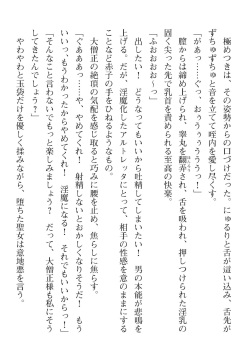 極めつきは、その姿勢からの口づけだった。にゅるりと舌が這い込み、舌先が
ずちゅずちゅと音を立てて咥内を愛しくする。
「がぁっ……ぐっ　おぅぅうぅぅうっ！」
膣からは締めつけられ、睾丸を翻弄され、舌を吸われ、押しつけられた淫乳の
固く尖った先で乳首を責められる至高の快楽。
「ふおおおぉぉっ」
出したい！　どうなってもいいから吐精してしまいたい！　男の本能が悲鳴を
上げる。だが、淫魔化したアストレッタにとって、相手の性感を意のままにする
ことなど赤子の手をひねるようなもの。
大僧正の絶頂の気配を感じ取ると巧みに腰を止め、焦らしに焦らす。
「ぐああああっ……や、やめてくれ！　射精しないとおかしくなりそうだ！
いいっ、もうわかったからやめてくれ！　淫魔になる！　それでもいいからっ！」
「そんなこと言わないでもっと楽しみましょう？　だって、大僧正様も私にそう
してきたんでしょう？」
やわやわと玉袋だけを優しく揉みながら、堕ちた聖女は意地悪を言う。